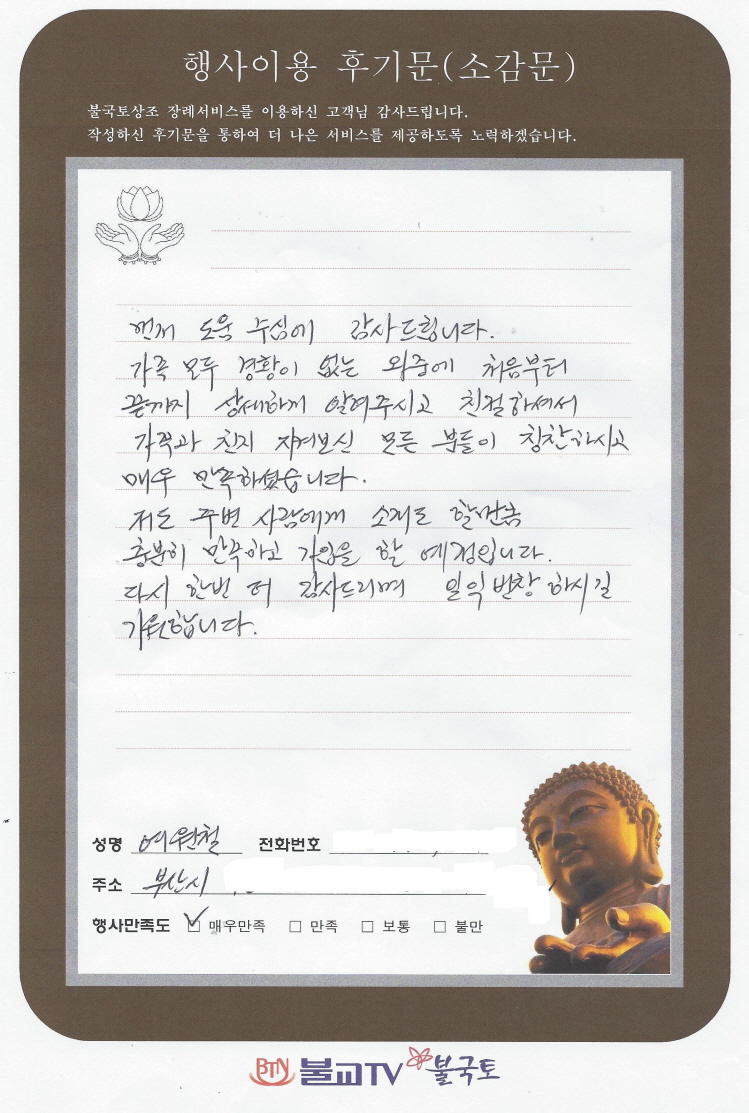 행사이용 후기문(소감문)
불국토상조 장례서비스를 이용하신 고객님 감사드립니다.
작성하신 후기문을 통하여 더 나은 서비스를 제공하도록 노력하겠습니다.
먼저 도움 주심에 감사드립니다.
가족 모두 경황이 없는 와중에 처음부터
끝까지 상세하게 알려주시고 친절하셔서
가족과 친지 지켜보신 모든 분들이 칭찬하시고
매우 만족하셨습니다.
저도 주변 사람에게 소개도 할만큼
충분히 만족하고 가입을 할 예정입니다.
다시 한번 더 감사드리며 일익번창 하시길
기원합니다.
성명 여원철 전화번호
주소 부산시
행사만족도 ☑ 매우만족 □ 만족 □ 보통 □ 불만
BTN 불교TV 불국토